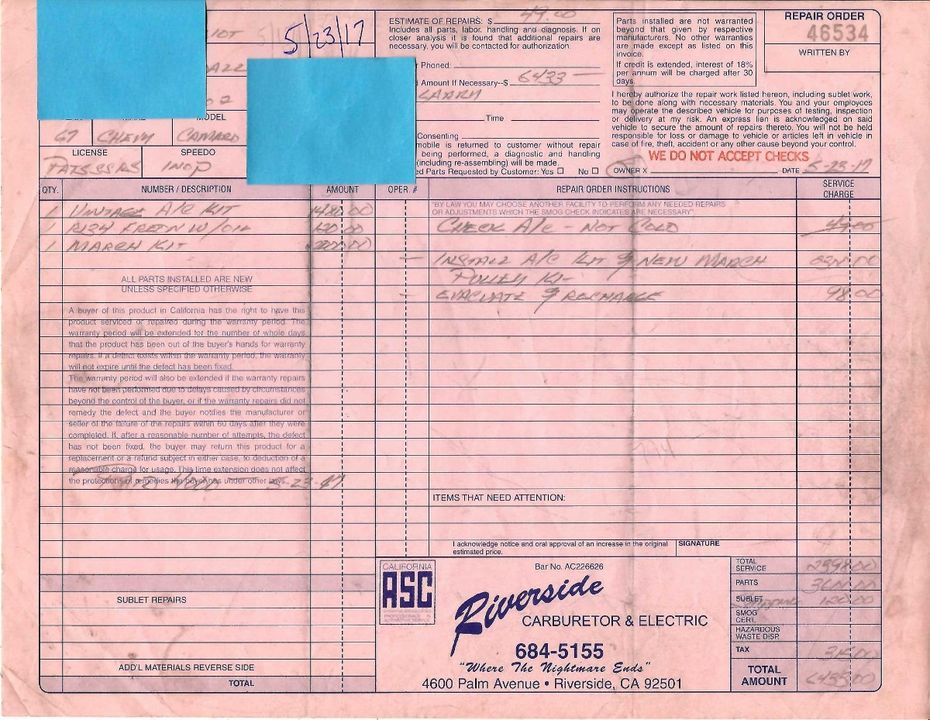 5/23/17
ESTIMATE OF REPAIRS: $ 49.00
Includes all parts, labor, handling and diagnosis. If on
closer analysis it is found that additional repairs are
necessary, you will be contacted for authorization.
Phoned:
Amount If Necessary--$ 6433
LARRY
Time
Consenting
mobile is returned to customer without repair
being performed, a diagnostic and handling
(including re-assembling) will be made.
ed Parts Requested by Customer: Yes ☐ No ☐
Parts installed are not warranted
beyond that given by respective
manufacturers. No other warranties
are made except as listed on this
invoice.
If credit is extended, interest of 18%
per annum will be charged after 30
days.
REPAIR ORDER
46534
WRITTEN BY
I hereby authorize the repair work listed hereon, including sublet work,
to be done along with necessary materials. You and your employees
may operate the described vehicle for purposes of testing, inspection
or delivery at my risk. An express lien is acknowledged on said
vehicle to secure the amount of repairs thereto. You will not be held
responsible for loss or damage to vehicle or articles left in vehicle in
case of fire, theft, accident or any other cause beyond your control.
WE DO NOT ACCEPT CHECKS
OWNER X DATE 5-23-17
MODEL
67 CHEVY CAMARO
LICENSE SPEEDO
INOP
QTY. NUMBER / DESCRIPTION AMOUNT OPER. # REPAIR ORDER INSTRUCTIONS SERVICE CHARGE
"BY LAW YOU MAY CHOOSE ANOTHER FACILITY TO PERFORM ANY NEEDED REPAIRS
OR ADJUSTMENTS WHICH THE SMOG CHECK INDICATES ARE NECESSARY"
1 VINTAGE A/C KIT
1 R134 FREON W/OIL 120.00
1 MARCH KIT
CHECK A/C - NOT COLD 49.00
INSTALL A/C KIT & NEW MARCH
PULLEY KIT
EVACUATE & RECHARGE 98.00
ALL PARTS INSTALLED ARE NEW
UNLESS SPECIFIED OTHERWISE
A buyer of this product in California has the right to have this
product serviced or repaired during the warranty period. The
warranty period will be extended for the number of whole days
that the product has been out of the buyer's hands for warranty
repairs. If a defect exists within the warranty period, the warranty
will not expire until the defect has been fixed.
The warranty period will also be extended if the warranty repairs
have not been performed due to delays caused by circumstances
beyond the control of the buyer, or if the warranty repairs did not
remedy the defect and the buyer notifies the manufacturer or
seller of the failure of the repairs within 60 days after they were
completed. If, after a reasonable number of attempts, the defect
has not been fixed, the buyer may return this product for a
replacement or a refund subject in either case, to deduction of a
reasonable charge for usage. This time extension does not affect
the protections or remedies the buyer has under other laws.
5-23-17
ITEMS THAT NEED ATTENTION:
I acknowledge notice and oral approval of an increase in the original
estimated price.
SIGNATURE
SUBLET REPAIRS
ADD'L MATERIALS REVERSE SIDE
TOTAL
CALIFORNIA
ASC
Bar No. AC226626
Riverside
CARBURETOR & ELECTRIC
684-5155
"Where The Nightmare Ends"
4600 Palm Avenue • Riverside, CA 92501
TOTAL SERVICE
PARTS 3600.00
SUBLET
SMOG CERT.
HAZARDOUS WASTE DISP.
TAX 315.00
TOTAL AMOUNT